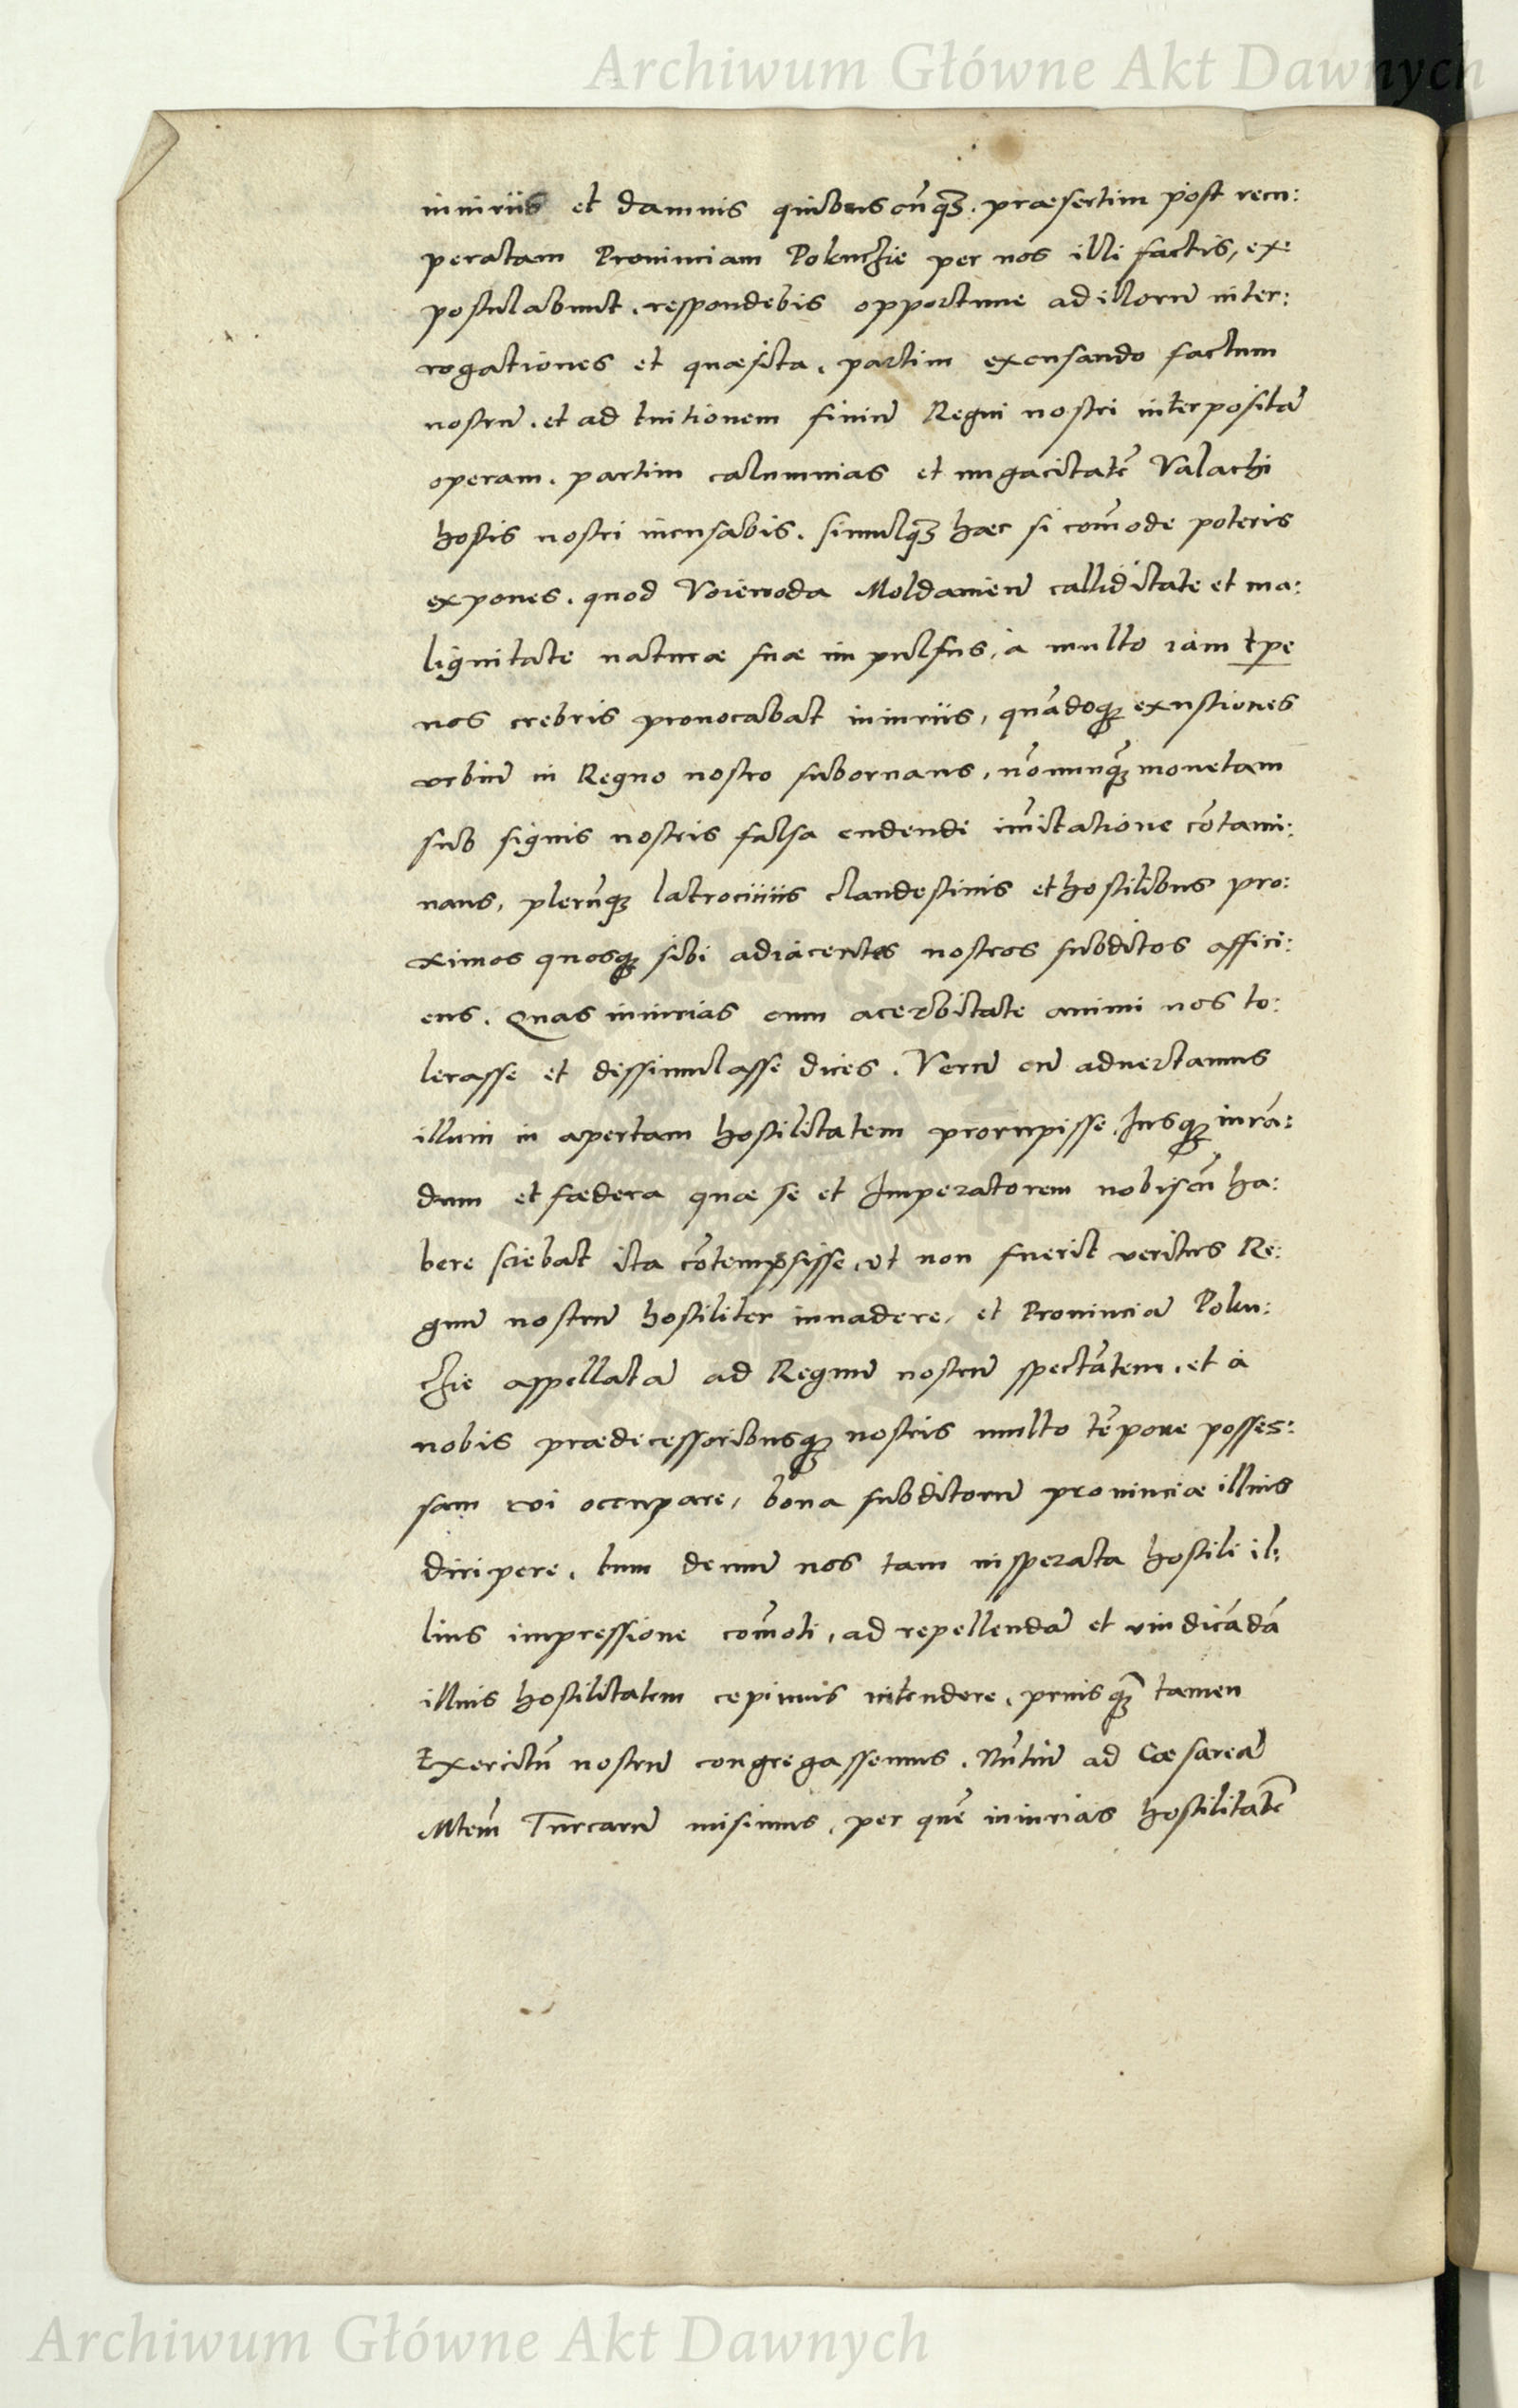 Archiwum Główne Akt Dawnych
iniuriis et damnis quibuscūq3. præsertim post recu:
peratam Prouinciam Pokuchie per nos illi factis, ex:
postulabunt. respondebis opportune ad illorū inter:
rogationes et quæsita, partim excusando factum
nostrū. et ad tuitionem finiū Regni nostri interpositā
operam. partim calumnias et mgacitatē Valachi
hostis nostri incusabis. simulq3 hæc si com̄ode poteris
expones. quod Voiewoda Moldauień calliditate et ma:
lignitate naturæ suæ impulsus, à multo iam tpe
nos crebris prouocabat iniuriis, quādoq3 exustiones
vrbiū in Regno nostro subornans, nōnunq̄3 monetam
sub signis nostris falsa cudendi im̄itatione cōtami:
nans, plerūq3 latrociniis clandestinis et hostilibus pro:
ximos quosq3 sibi adiacentes nostros subditos affici:
ens. Quas iniurias cum acerbitate animi nos to:
lerasse et dissimulasse dices. Verū cū aduertamus
illum in apertam hostilitatem prorupisse. Iusq3 iurā:
dum et fœdera quæ se et Imperatorem nobiscū ha:
bere sciebat ita cōtempsisse, vt non fuerit veritus Re:
gnū nostrū hostiliter inuadere, et Prouinciā Poku:
chie appellatā ad Regnū nostrū spectātem, et à
nobis prædecessoribusq3 nostris multo tēpore posses:
sam vi occupare, bona subditorū prouinciæ illius
diripere. tum demū nos tam insperata hostili il:
lius impressione com̄oti, ad repellendā et vindicādā
illius hostilitatem cepimus intendere, priusq̄3 tamen
Exercitū nostrū congregassemus. Nūtiū ad Cæsareā
Mtem̄ Turcarū misimus, per quē iniurias hostilitatē
Archiwum Główne Akt Dawnych